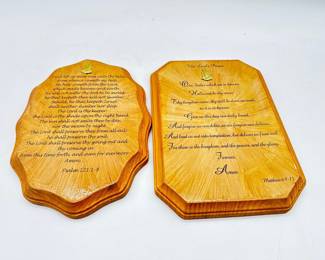 I will lift up mine eyes unto the hills,
from whence cometh my help.
My help cometh from the Lord,
which made heaven and earth.
He will not suffer thy foot to be moved:
he that keepeth thee will not slumber.
Behold, he that keepeth Israel
shall neither slumber nor sleep.
The Lord is thy keeper:
the Lord is thy shade upon thy right hand.
The sun shall not smite thee by day,
nor the moon by night.
The Lord shall preserve thee from all evil:
he shall preserve thy soul.
The Lord shall preserve thy going out and
thy coming in
from this time forth, and even for evermore.
Amen.
Psalm 121:1-8
The Lord's Prayer
Our Father which art in heaven,
Hallowed be thy name.
Thy kingdom come, thy will be done on earth,
as it is in heaven.
Give us this day our daily bread.
And forgive us our debts, as we forgive our debtors.
And lead us not into temptation, but deliver us from evil:
For thine is the kingdom, and the power, and the glory,
Forever.
Amen
Matthew 6:9-13